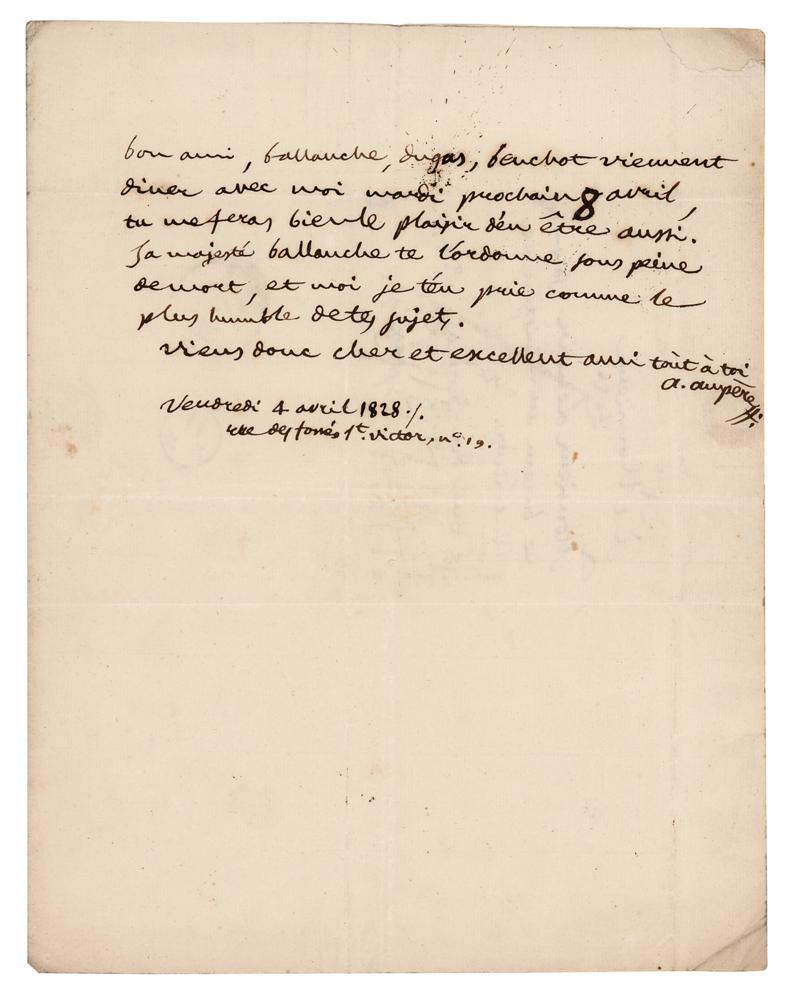 bon ami, ballanche, dugas, beuchot viennent
diner avec moi mardi prochain 8 avril,
tu me feras bien le plaisir d'en être aussi.
Sa majesté ballanche te l'ordonne sous peine
de mort, et moi je t'en prie comme le
plus humble de tes sujets.
viens donc cher et excellent ami tout à toi
a. ampère
Vendredi 4 avril 1828 ./.
rue des fossés St. victor, n.o 19.